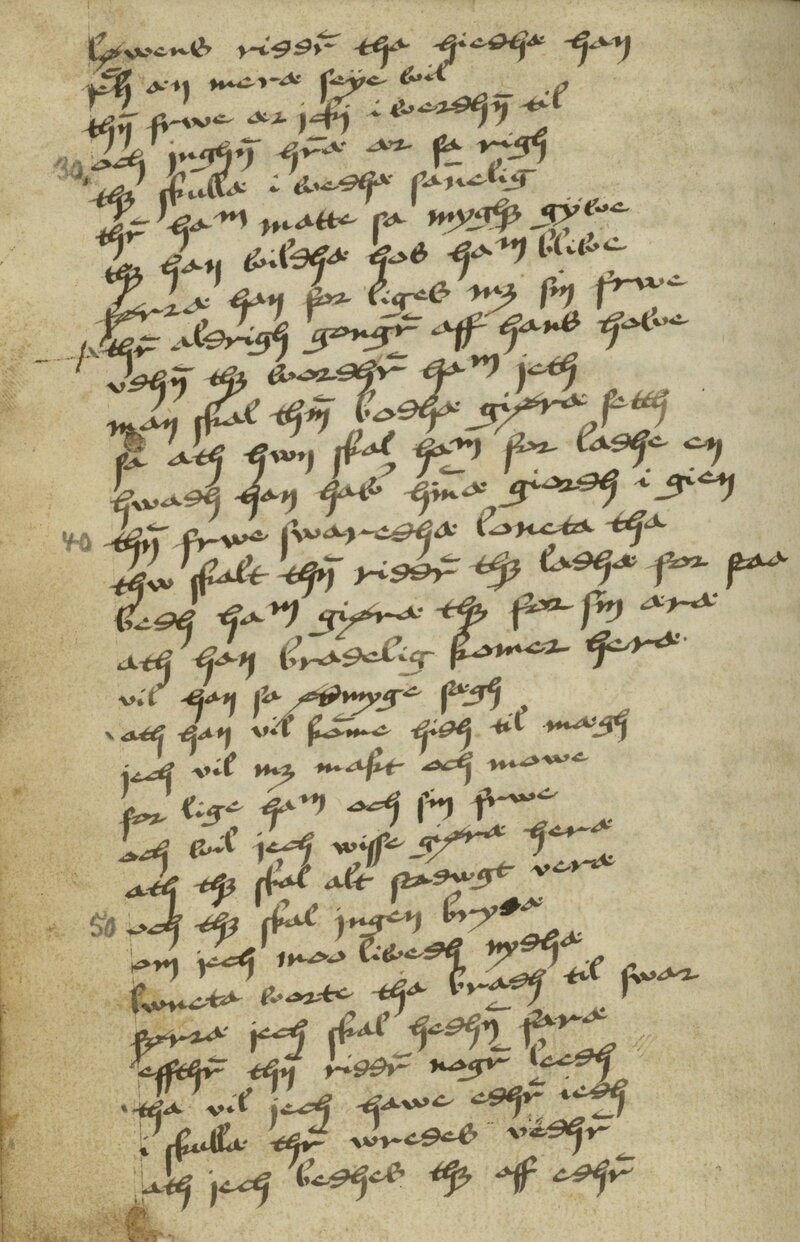 løwens riddr̄ tha hiedhæ han
jech æn meræ seye wil
thn̄ frwe ær jckj i werdhn̄ til
30 och jnghn̄ hr̄æ ær sa righ
thꝫ skullæ i wedhæ san̄elig
thr̄ haᵐ matte sa myghꝫ gywe
thꝫ han wildhæ hos haᵐ bliwe
førræ han for liges mꝫ sin frwe
thr̄ aldrigh gongr̄ aff hans howe
vdhn̄ thꝫ wordhr̄ haᵐ jeth
man skal thm̄ bodhæ giøræ setth
sa ath hwn skal haᵐ for ladhe en
hwadh han haw̄ hin̄æ giordh i gien
40 thn̄ frwe swaredhæ loneta tha
thw skalt thn̄ riddr̄ thꝫ ladhæ for staa
bedh haᵐ giøræ thꝫ for sin æræ
ath han bradelig komer heræ
vil han sa ødmyge sægh
ath han vil kōme hidh til mægh
jech vil mꝫ makt och mowe
for lige haᵐ och sin frwe
och wil jech wisse giøræ heræ
ath thꝫ skal alt stadwgt veræ
50 och thꝫ skal jngen brydæ
om jech moo liwedh nydhæ
lwneta worte tha bradh til swar
førræ jech skal hedhn̄ faræ
effthr̄ thn̄ riddr̄ nogr̄ leedh
tha vil jech hawe edhr̄ iedh
i skullæ thr̄ wredes vedhr̄
ath jech bedhes thꝫ aff edhr̄